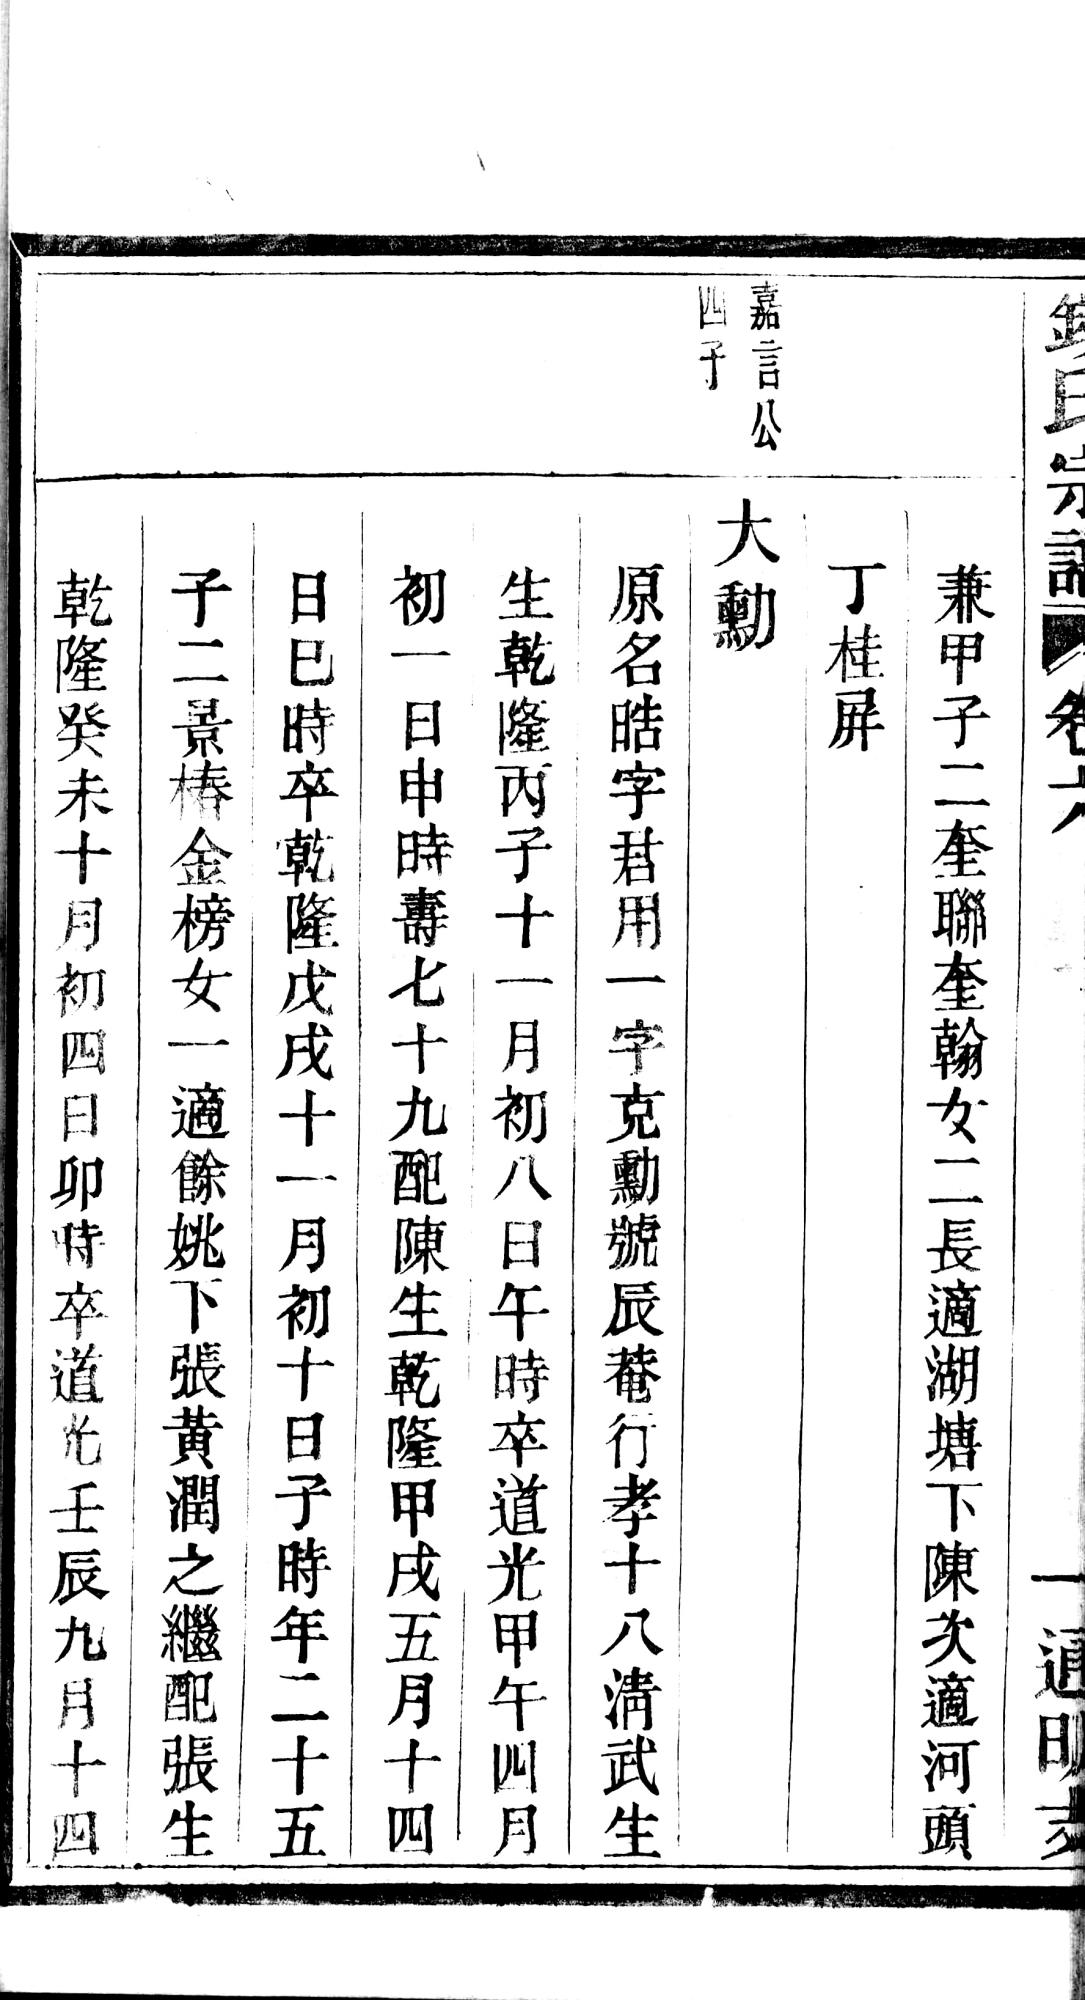 氏宗譜
卷六
一
通明支
兼甲子二奎聯奎翰女二長適湖塘下陳次適河頭
丁桂屏
嘉言公
四子
大勳
原名晧字君用一字克勳號辰菴行孝十八淸武生
生乾隆丙子十一月初八日午時卒道光甲午四月
初一日申時壽七十九配陳生乾隆甲戌五月十四
日巳時卒乾隆戊戌十一月初十日子時年二十五
子二景椿金榜女一適餘姚下張黃潤之繼配張生
乾隆癸未十月初四日卯時卒道光壬辰九月十四